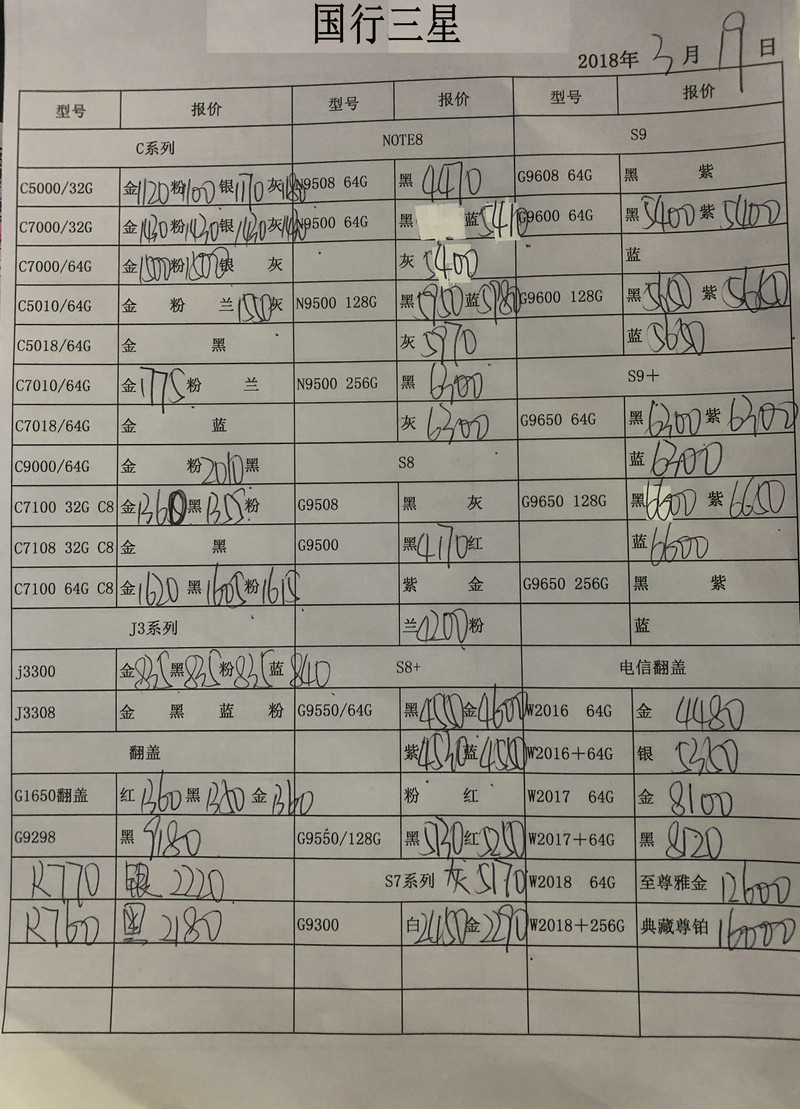 国行三星
2018年3月19日
型号 报价 型号 报价 型号 报价
C系列 NOTE8 S9
C5000/32G 金1120粉1100银1170灰1180 N9508 64G 黑 4470 G9608 64G 黑 紫
C7000/32G 金1430粉1430银1430灰 N9500 64G 黑 蓝5410 G9600 64G 黑5400紫5400
C7000/64G 金1500粉1500银 灰 灰5400 蓝
C5010/64G 金 粉 兰1550灰 N9500 128G 黑5950蓝5980 G9600 128G 黑5650紫5660
C5018/64G 金 黑 灰5970 蓝5650
C7010/64G 金1775粉 兰 N9500 256G 黑 6300 S9+
C7018/64G 金 蓝 灰 6300 G9650 64G 黑6300紫6300
C9000/64G 金 粉2010黑 S8 蓝6300
C7100 32G C8 金1360黑1355粉 G9508 黑 灰 G9650 128G 黑6600紫6650
C7108 32G C8 金 黑 G9500 黑4170红 蓝6600
C7100 64G C8 金1620黑1605粉1615 紫 金 G9650 256G 黑 紫
J3系列 兰4200粉 蓝
j3300 金835黑835粉835蓝840 S8+ 电信翻盖
J3308 金 黑 蓝 粉 G9550/64G 黑4550金4600 W2016 64G 金 4480
翻盖 紫4530蓝4550 W2016+64G 银 5350
G1650翻盖 红1360黑1350金1360 粉 红 W2017 64G 金 8100
G9298 黑 9180 G9550/128G 黑5130红5250 W2017+64G 黑 8120
R770 银 2220 S7系列 灰5170 W2018 64G 至尊雅金 12600
R760 黑 2180 G9300 白2450金2290 W2018+256G 典藏尊铂 16000